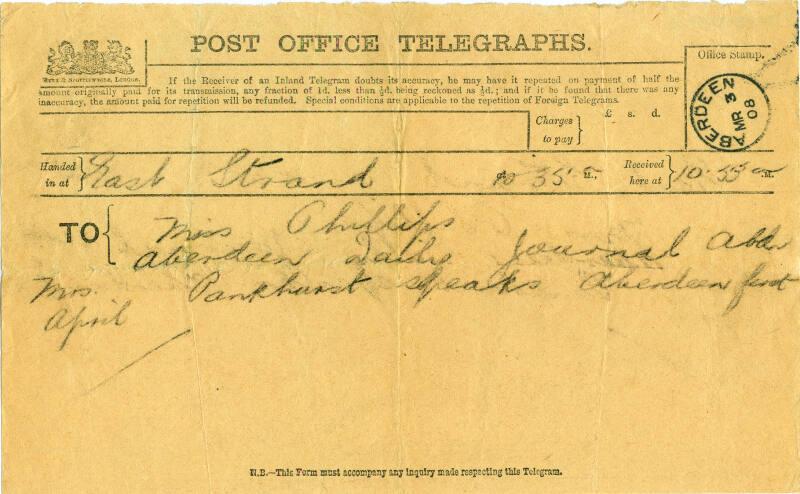 POST OFFICE TELEGRAPHS.
If the Receiver of an Inland Telegram doubts its accuracy, he may have it repeated on payment of half the
amount originally paid for its transmission, any fraction of 1d. less than ½d. being reckoned as ½d.; and if it be found that there was any
inaccuracy, the amount paid for repetition will be refunded. Special conditions are applicable to the repetition of Foreign Telegrams.
Office Stamp.
ABERDEEN
MR 3
08
Charges
to pay
£ s. d.
Handed
in at
East Strand
at
10.35
M.,
Received
here at
10.55
M.
TO
Miss Phillips
Aberdeen Daily Journal Abdn
Mrs. Pankhurst speaks Aberdeen first
April
N.B.—This Form must accompany any inquiry made respecting this Telegram.